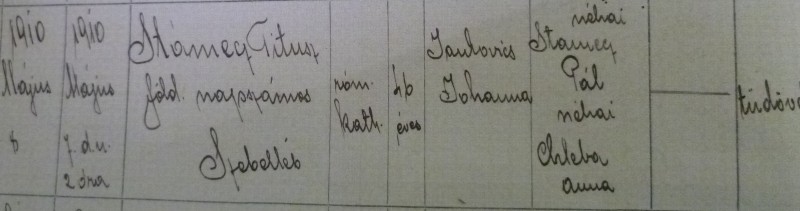 1910
Május
8
1910
Május
7 d.u.
2 óra
Stamecz Titusz
föld. napszámos
Szebelléb
róm.
kath.
46
éves
Jankovics
Johanna
néhai
Stamecz
Pál
néhai
Chleba
Anna
tüdővé